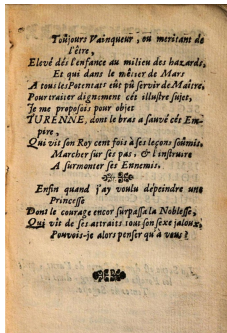 Toûjours Vainqueur, ou meritant de
l'être,
Elevé dés l'enfance au milieu des hazards,
Et qui dans le métier de Mars
A tous les Potentats eût pû servir de Maître,
Pour traiter dignement cét illustre sujet,
Je me proposois pour objet
TURENNE, dont le bras a sauvé cét Em-
pire,
Qui vit son Roy cent fois à ses leçons soûmis,
Marcher sur ses pas, & s'instruire
A surmonter ses Ennemis.
Enfin quand j'ay voulu dépeindre une
Princesse
Dont le courage encor surpassa la Noblesse,
Qui vit de ses attraits tout son sexe jaloux,
Pouvois-je alors penser qu'à vous?